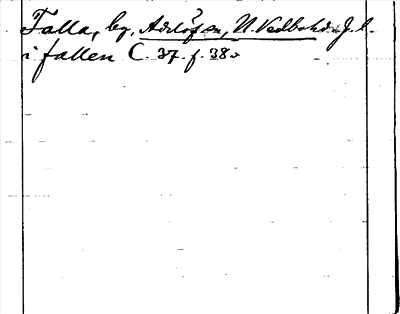 Falla, by, Adelöfsn, N. Vedbohd. J. l.
i fallen C. 37. f. 38.